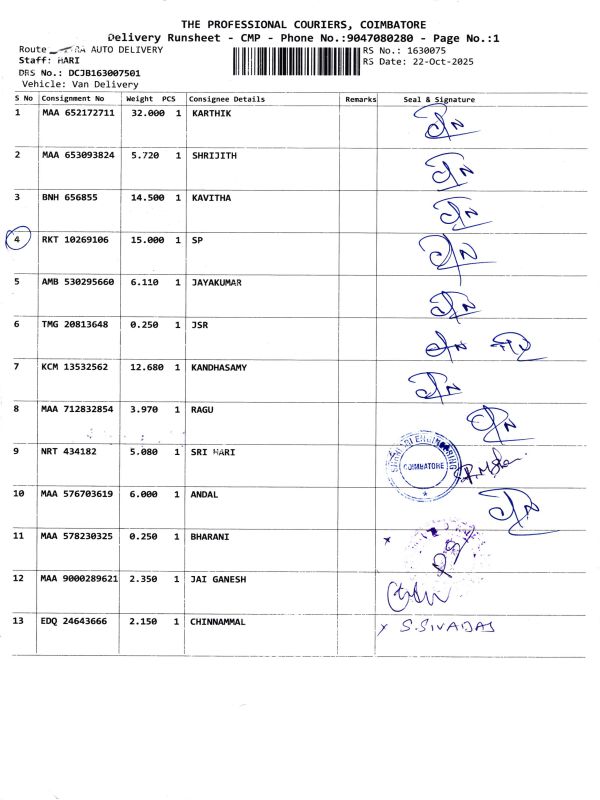 THE PROFESSIONAL COURIERS, COIMBATORE
Delivery Runsheet - CMP - Phone No.:9047080280 - Page No.:1
Route AUTO DELIVERY
RS No.: 1630075
Staff: HARI
RS Date: 22-Oct-2025
DRS No.: DCJB163007501
Vehicle: Van Delivery
S No Consignment No Weight PCS Consignee Details Remarks Seal & Signature
1 MAA 652172711 32.000 1 KARTHIK
2 MAA 653093824 5.720 1 SHRIJITH
3 BNH 656855 14.500 1 KAVITHA
4 RKT 10269106 15.000 1 SP
5 AMB 530295660 6.110 1 JAYAKUMAR
6 TMG 20813648 0.250 1 JSR
7 KCM 13532562 12.680 1 KANDHASAMY
8 MAA 712832854 3.970 1 RAGU
9 NRT 434182 5.080 1 SRI HARI COIMBATORE
10 MAA 576703619 6.000 1 ANDAL
11 MAA 578230325 0.250 1 BHARANI
12 MAA 9000289621 2.350 1 JAI GANESH
13 EDQ 24643666 2.150 1 CHINNAMMAL x S.SIVADAS